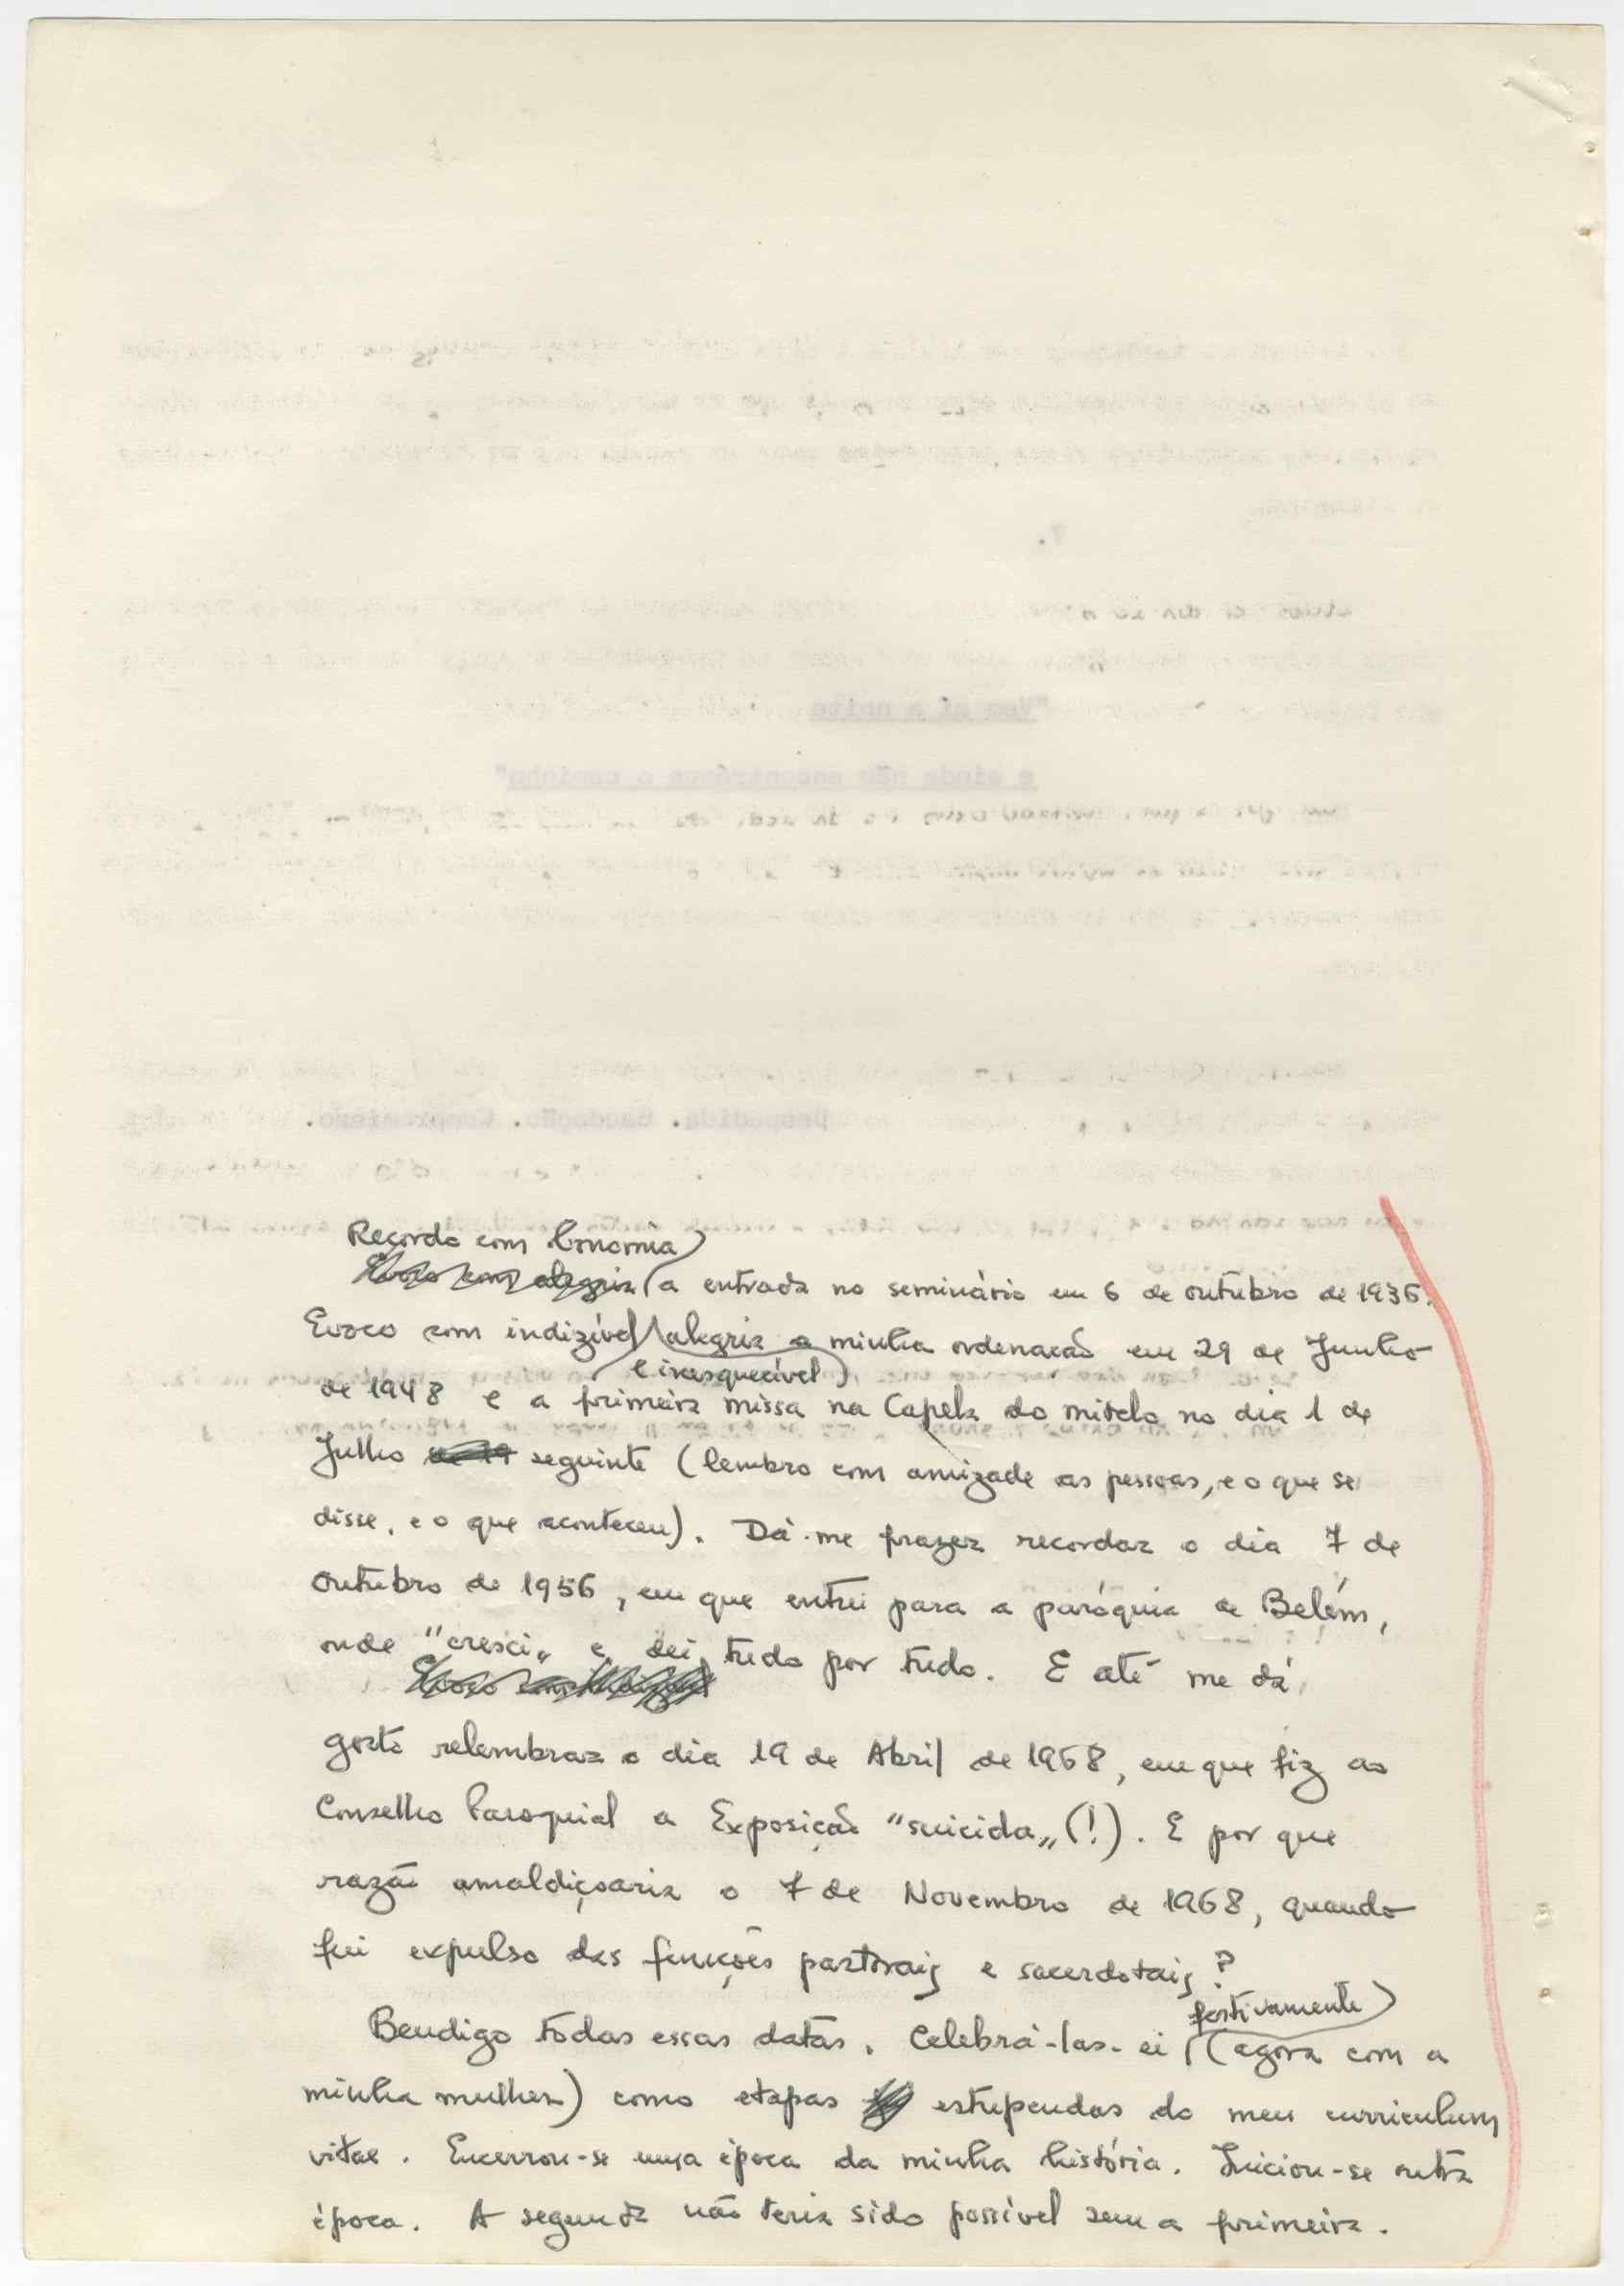 Recordo com bonomia
Evoco com alegria a entrada no seminário em 6 de outubro de 1936.
Evoco com indizível alegria a minha ordenação em 29 de Junho
e inesquecível
de 1948 e a primeira missa na Capela do mitelo no dia 1 de
Julho de 19 seguinte (lembro com amizade as pessoas, e o que se
disse, e o que aconteceu). Dá-me prazer recordar o dia 7 de
outubro de 1956, em que entrei para a paróquia de Belém,
onde "cresci" e dei tudo por tudo. E até me dá
gosto relembrar o dia 19 de Abril de 1968, em que fiz ao
Conselho Paroquial a Exposição "suicida" (!). E por que
razão amaldiçoaria o 7 de Novembro de 1968, quando
fui expulso das funções pastorais e sacerdotais?
festivamente
Bendigo todas essas datas. Celebrá-las-ei (agora com a
minha mulher) como etapas estupendas do meu curriculum
vitae. Encerrou-se uma época da minha história. Iniciou-se outra
época. A segunda não teria sido possível sem a primeira.